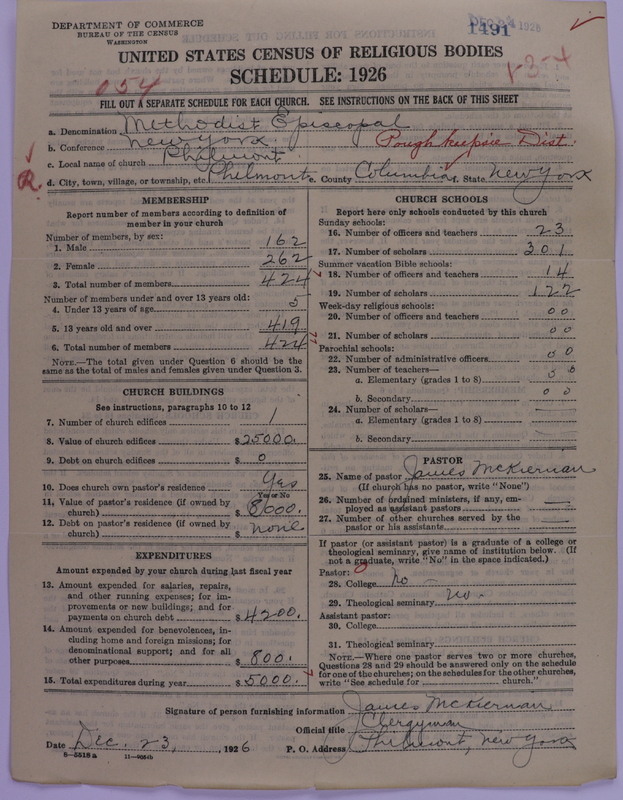 DEPARTMENT OF COMMERCE
BUREAU OF THE CENSUS
WASHINGTON
1491
1926
UNITED STATES CENSUS OF RELIGIOUS BODIES
SCHEDULE: 1926
054
FILL OUT A SEPARATE SCHEDULE FOR EACH CHURCH. SEE INSTRUCTIONS ON THE BACK OF THIS SHEET
a. Denomination Methodist Episcopal
b. Conference New York Poughkeepsie Dist.
c. Local name of church Philmont
d. City, town, village, or township, etc. Philmont e. County Columbia f. State New York
R.
MEMBERSHIP
Report number of members according to definition of
member in your church
Number of members, by sex:
1. Male 162
2. Female 262
3. Total number of members 424
Number of members under and over 13 years old:
4. Under 13 years of age 5
5. 13 years old and over 419
6. Total number of members 424
NOTE.—The total given under Question 6 should be the
same as the total of males and females given under Question 3.
CHURCH BUILDINGS
See instructions, paragraphs 10 to 12
7. Number of church edifices 1
8. Value of church edifices $25000.
9. Debt on church edifices $ 0
10. Does church own pastor's residence Yes
Yes or No
11. Value of pastor's residence (if owned by
church) $ 8000.
12. Debt on pastor's residence (if owned by
church) $ none
EXPENDITURES
Amount expended by your church during last fiscal year
13. Amount expended for salaries, repairs,
and other running expenses; for im-
provements or new buildings; and for
payments on church debt $4200.
14. Amount expended for benevolences, in-
cluding home and foreign missions; for
denominational support; and for all
other purposes $ 800.
15. Total expenditures during year $5000.
CHURCH SCHOOLS
Report here only schools conducted by this church
Sunday schools:
16. Number of officers and teachers 23
17. Number of scholars 301
Summer vacation Bible schools:
18. Number of officers and teachers 14
19. Number of scholars 122
Week-day religious schools:
20. Number of officers and teachers 00
21. Number of scholars 00
Parochial schools:
22. Number of administrative officers 00
23. Number of teachers—
a. Elementary (grades 1 to 8) 00
b. Secondary 00
24. Number of scholars—
a. Elementary (grades 1 to 8)
b. Secondary
PASTOR
25. Name of pastor James McKiernan
(If church has no pastor, write "None")
26. Number of ordained ministers, if any, em-
ployed as assistant pastors
27. Number of other churches served by the
pastor or his assistants
If pastor (or assistant pastor) is a graduate of a college or
theological seminary, give name of institution below. (If
not a graduate, write "No" in the space indicated.)
Pastor:
28. College No
29. Theological seminary No
Assistant pastor:
30. College
31. Theological seminary
NOTE.—Where one pastor serves two or more churches,
Questions 28 and 29 should be answered only on the schedule
for one of the churches; on the schedules for the other churches,
write "See schedule for church."
Signature of person furnishing information James McKiernan
Official title Clergyman
Date Dec. 23, 1926 P. O. Address Philmont, New York
8—5518a